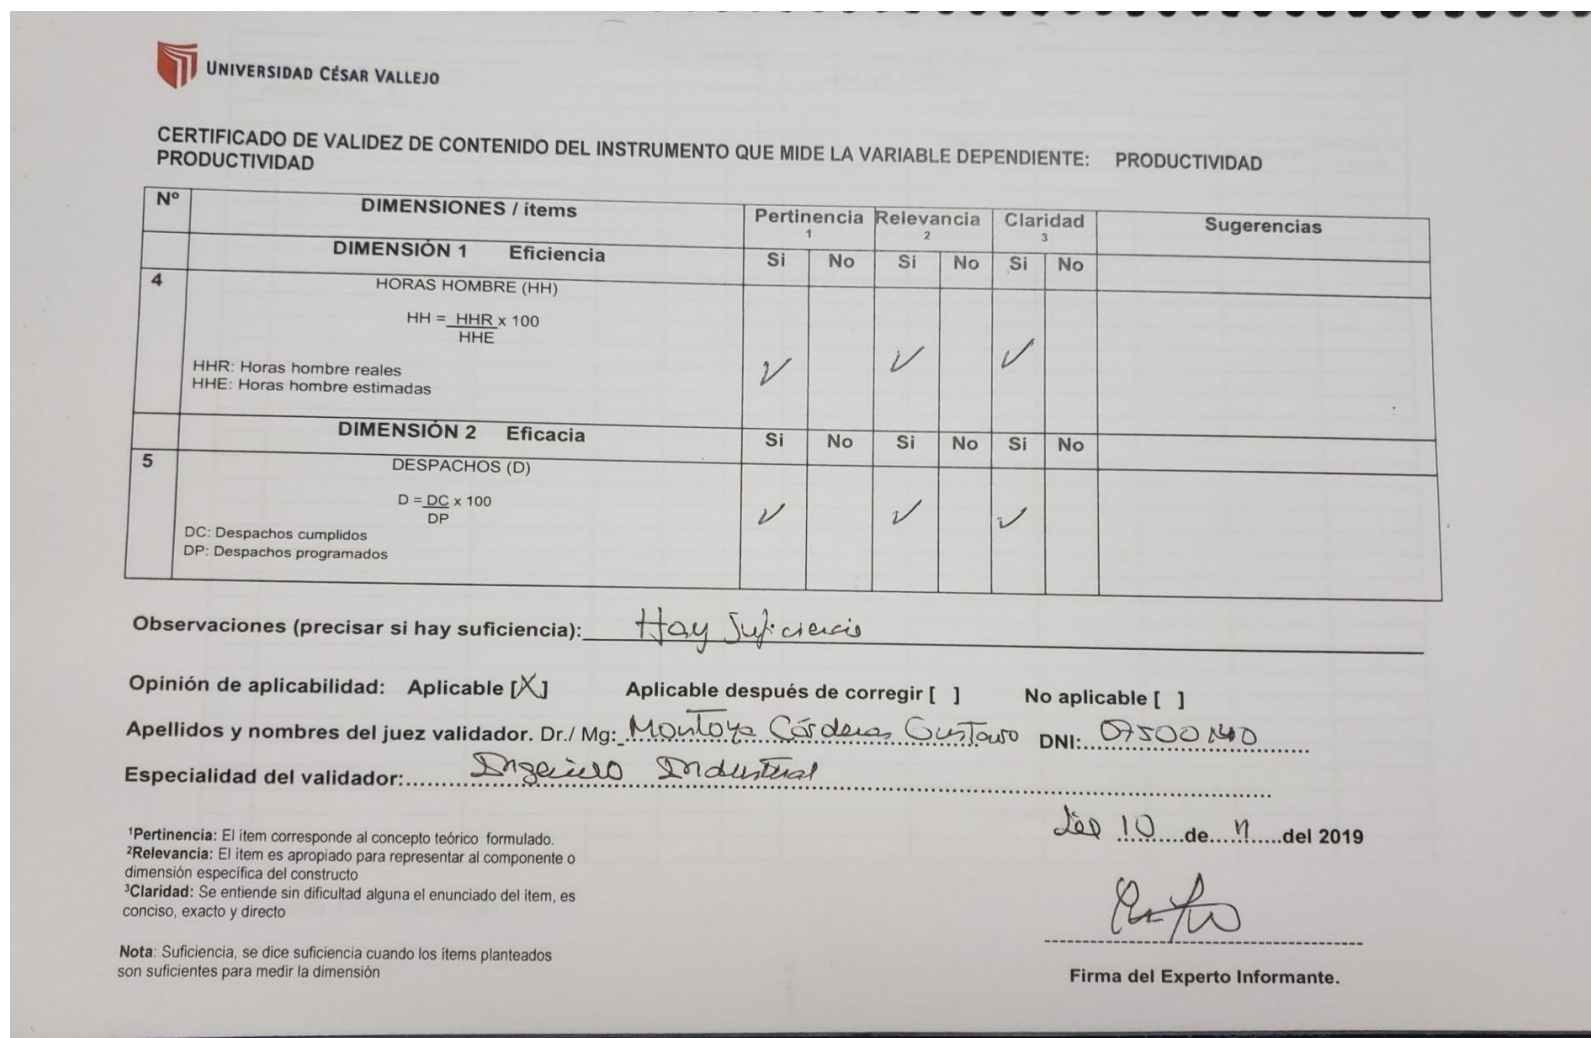 UNIVERSIDAD CÉSAR VALLEJO
CERTIFICADO DE VALIDEZ DE CONTENIDO DEL INSTRUMENTO QUE MIDE LA VARIABLE DEPENDIENTE: PRODUCTIVIDAD
PRODUCTIVIDAD
Nº DIMENSIONES / ítems Pertinencia 1 Relevancia 2 Claridad 3 Sugerencias
DIMENSIÓN 1 Eficiencia Si No Si No Si No
4 HORAS HOMBRE (HH)
HH = HHR x 100
HHE
✓ ✓ ✓
HHR: Horas hombre reales
HHE: Horas hombre estimadas
DIMENSIÓN 2 Eficacia Si No Si No Si No
5 DESPACHOS (D)
D = DC x 100
DP
✓ ✓ ✓
DC: Despachos cumplidos
DP: Despachos programados
Observaciones (precisar si hay suficiencia): Hay Suficiencia
Opinión de aplicabilidad: Aplicable [X] Aplicable después de corregir [ ] No aplicable [ ]
Apellidos y nombres del juez validador. Dr./ Mg: Montoya Cárdenas Gustavo DNI: 07500140
Especialidad del validador: Ingeniero Industrial
10 de 11 del 2019
¹Pertinencia: El ítem corresponde al concepto teórico formulado.
²Relevancia: El ítem es apropiado para representar al componente o
dimensión específica del constructo
³Claridad: Se entiende sin dificultad alguna el enunciado del ítem, es
conciso, exacto y directo
Nota: Suficiencia, se dice suficiencia cuando los ítems planteados
son suficientes para medir la dimensión
Firma del Experto Informante.